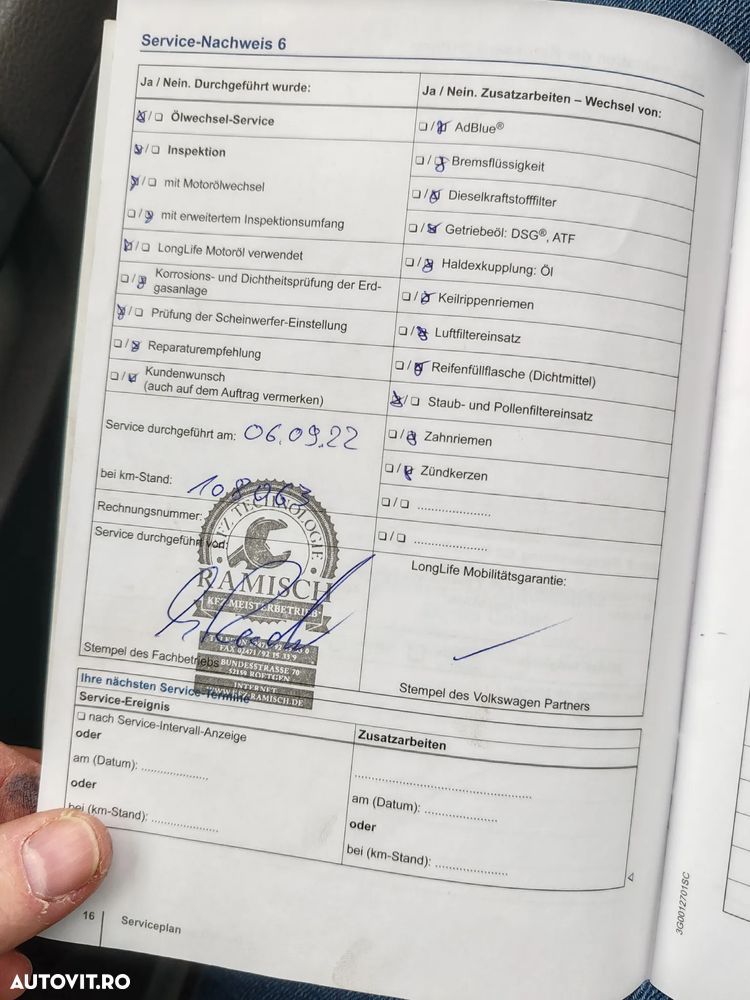 Service-Nachweis 6
Ja / Nein. Durchgeführt wurde:
Ölwechsel-Service
Inspektion
mit Motorölwechsel
mit erweitertem Inspektionsumfang
LongLife Motoröl verwendet
Korrosions- und Dichtheitsprüfung der Erd-
gasanlage
Prüfung der Scheinwerfer-Einstellung
Reparaturempfehlung
Kundenwunsch
(auch auf dem Auftrag vermerken)
Service durchgeführt am: 06.09.22
bei km-Stand:
Rechnungsnummer:
Service durchgeführt von:
KFZ TECHNOLOGIE
RAMISCH
KFZ-MEISTERBETRIEB
BUNDESSTRASSE 70
52159 ROETGEN
INTERNET
Stempel des Fachbetriebs
Ja / Nein. Zusatzarbeiten – Wechsel von:
AdBlue®
Bremsflüssigkeit
Dieselkraftstofffilter
Getriebeöl: DSG®, ATF
Haldexkupplung: Öl
Keilrippenriemen
Luftfiltereinsatz
Reifenfüllflasche (Dichtmittel)
Staub- und Pollenfiltereinsatz
Zahnriemen
Zündkerzen
LongLife Mobilitätsgarantie:
Stempel des Volkswagen Partners
Ihre nächsten Service-Termine
Service-Ereignis
nach Service-Intervall-Anzeige
oder
am (Datum): ....................
oder
bei (km-Stand): ....................
Zusatzarbeiten
am (Datum): ....................
oder
bei (km-Stand): ....................
16
Serviceplan
3G0012701SC
AUTOVIT.RO